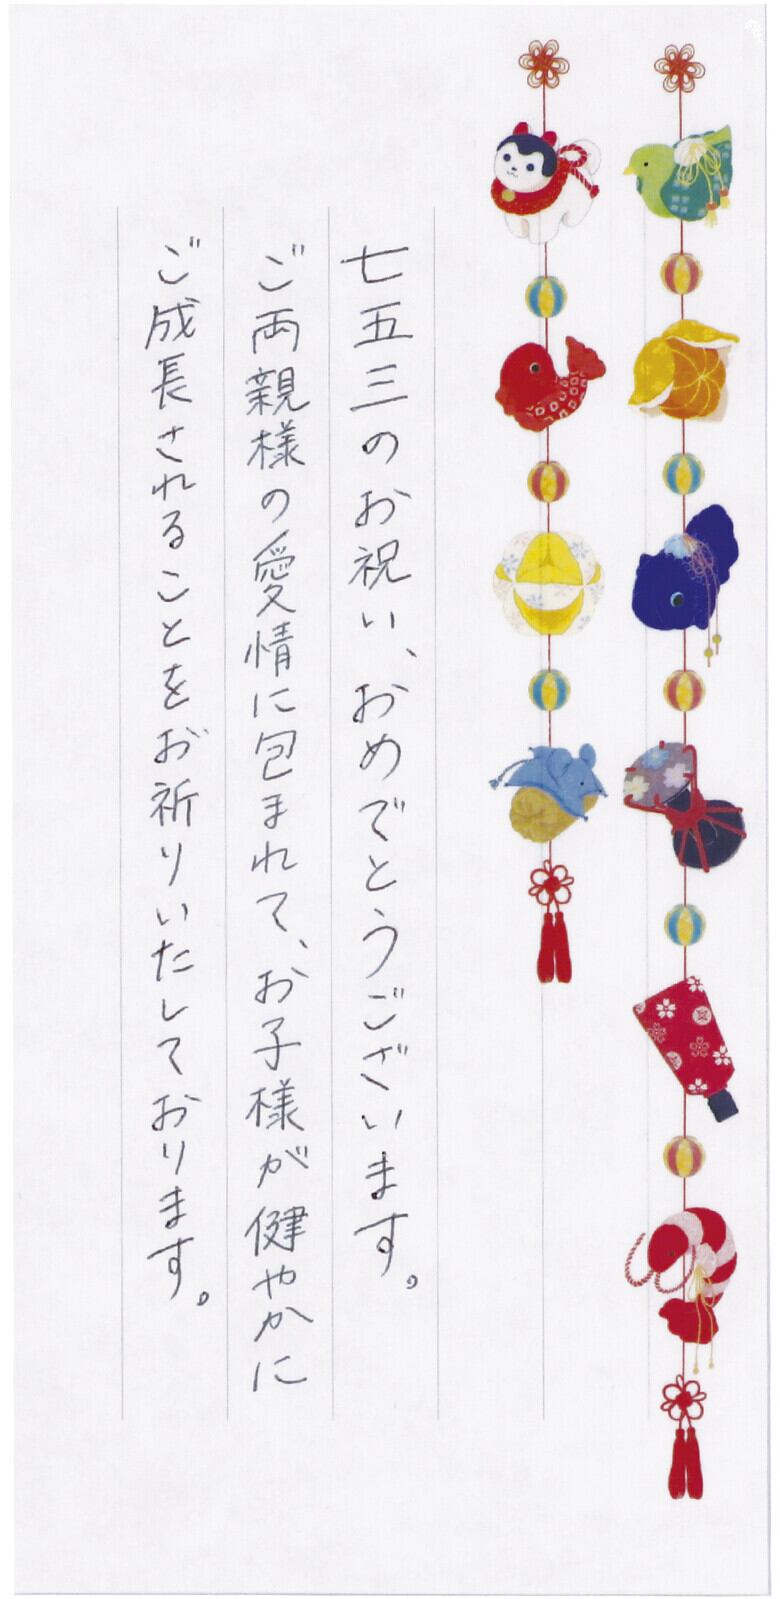 七五三のお祝い、おめでとうございます。
ご両親様の愛情に包まれて、お子様が健やかに
ご成長されることをお祈りいたしております。